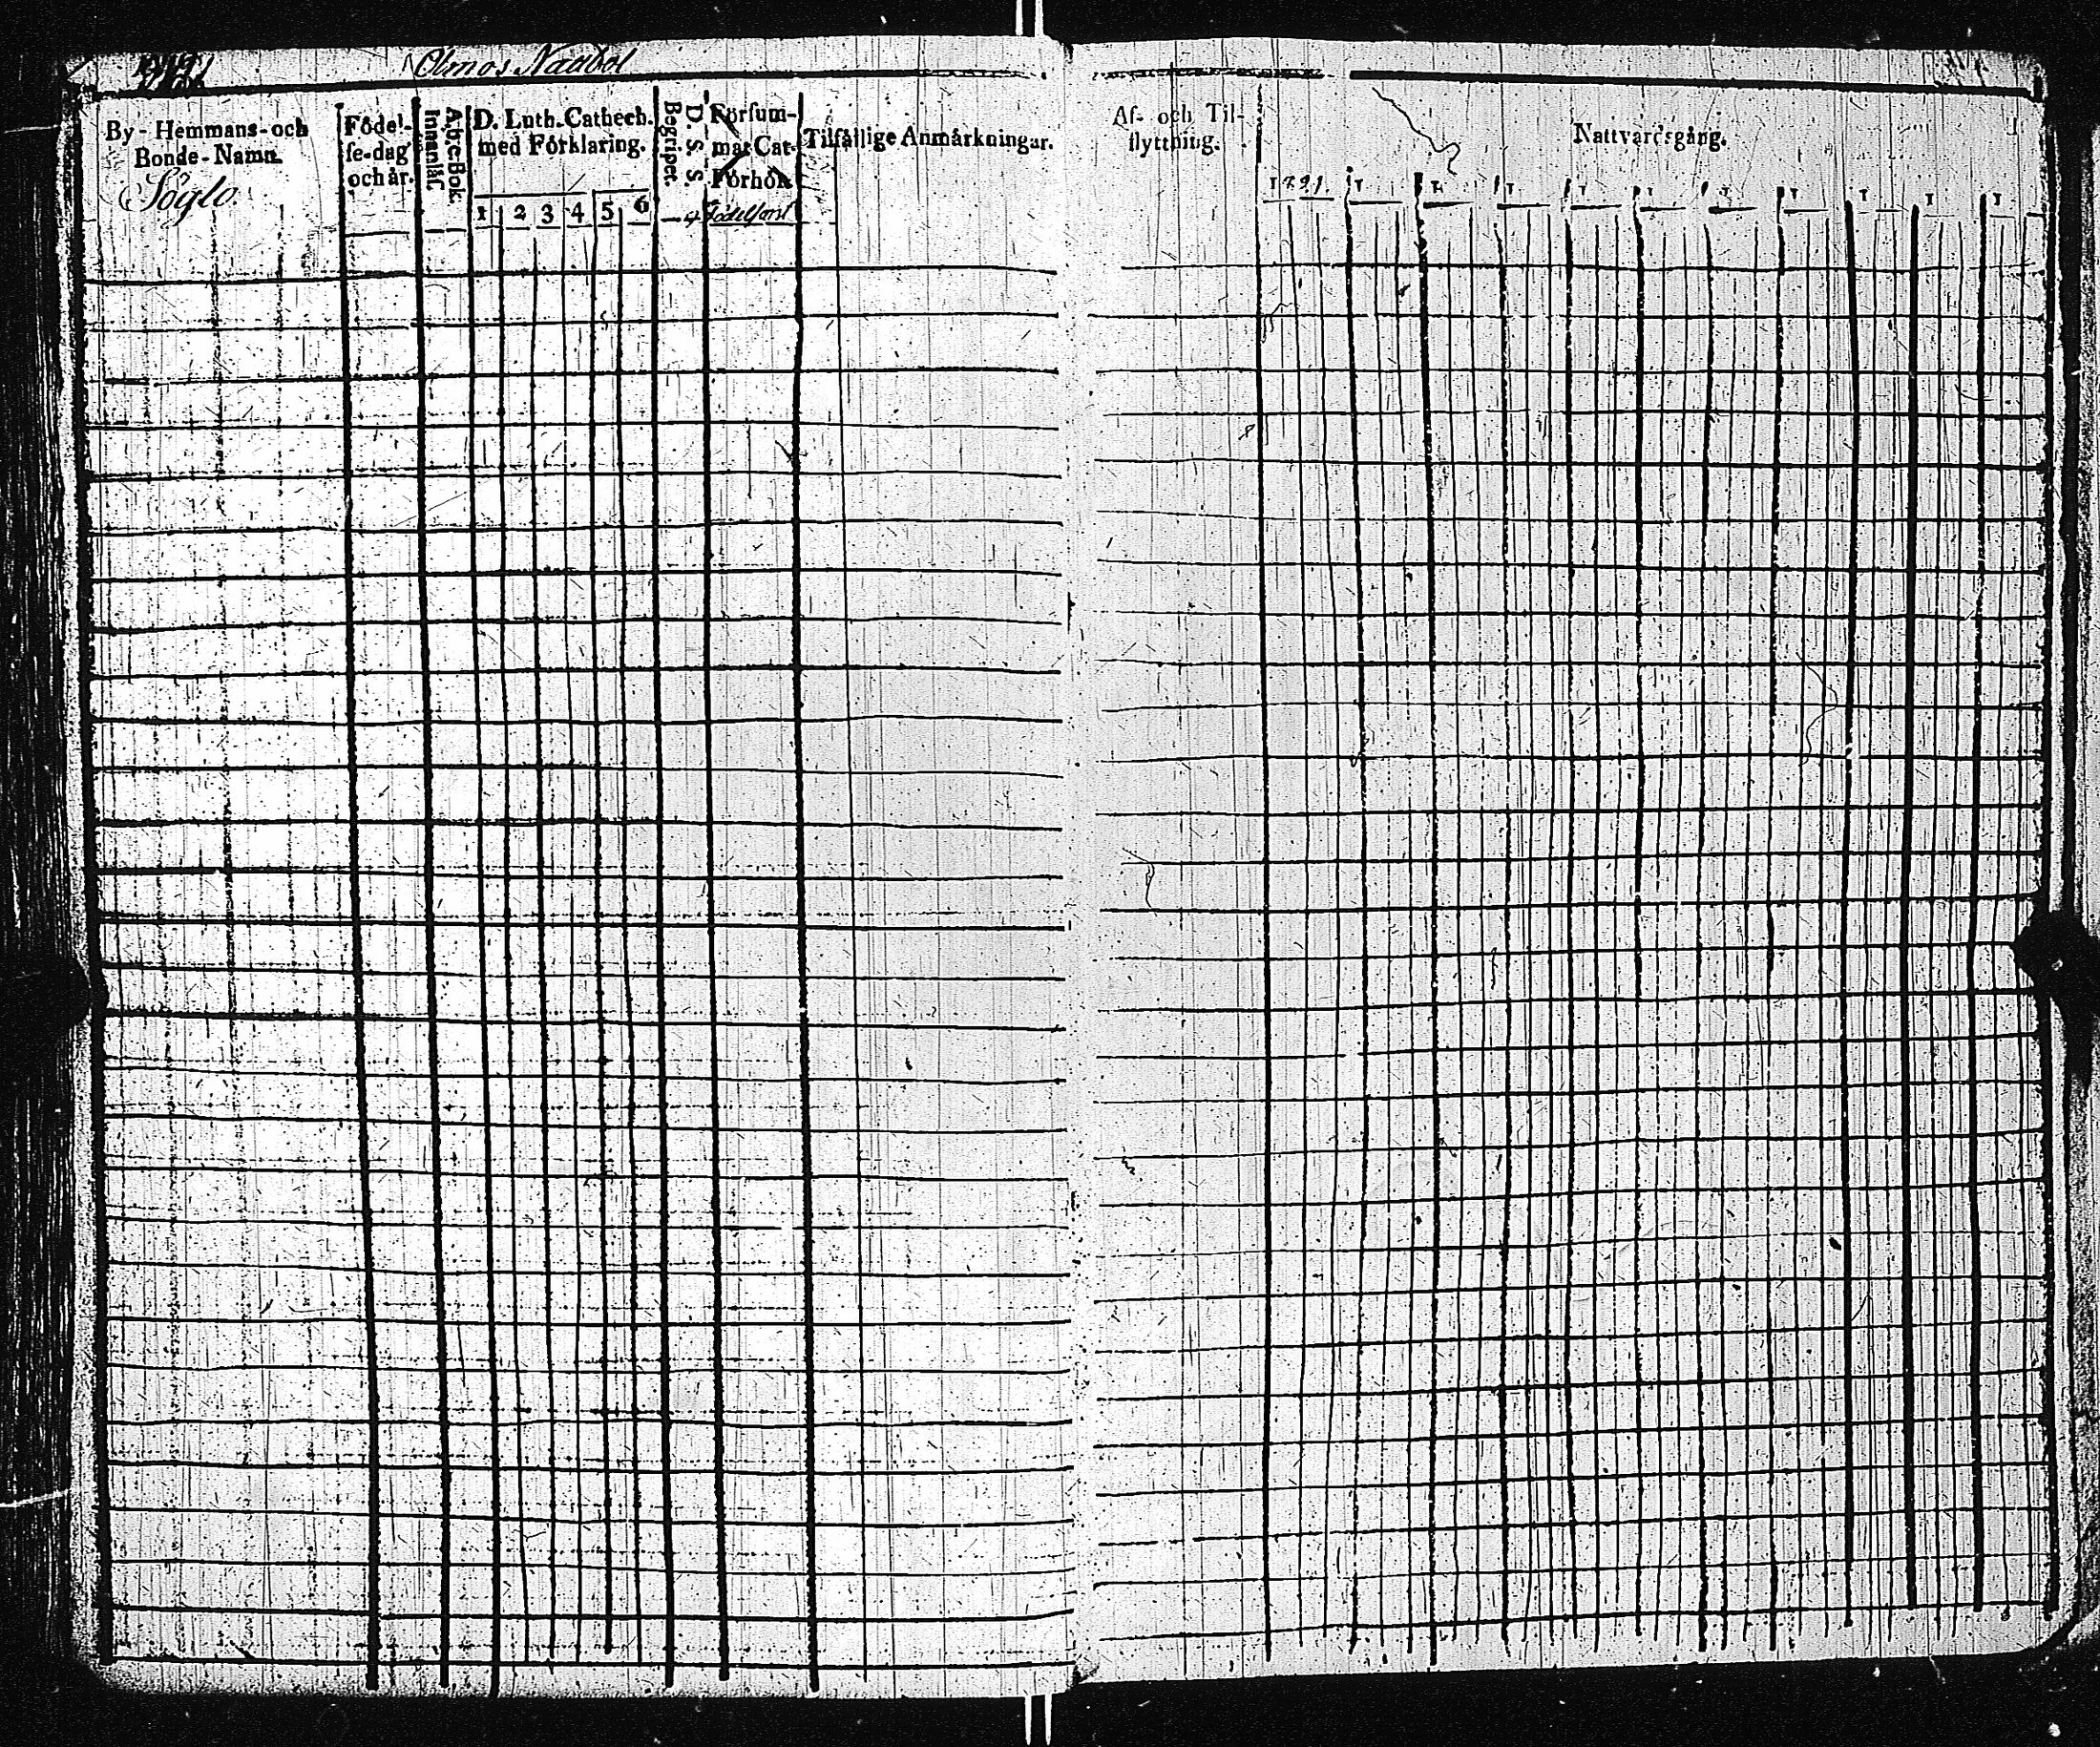 Olmos Nääbol
By- Hemmans- och
Bonde-Namn.
Söglo
Födel-
se-dag
och år.
A,b,c-Bok.
Innanläs.
D. Luth. Cathech.
med Förklaring.
1 2 3 4 5 6
Begriper.
D. S. S.
Försum-
mat Cat-
Förhör.
Födelseort
Tilfällige Anmärkningar.
Af- och Til-
flyttning.
Nattvardsgång.
1821. 1 1 1 1 1 1 1 1 1 1